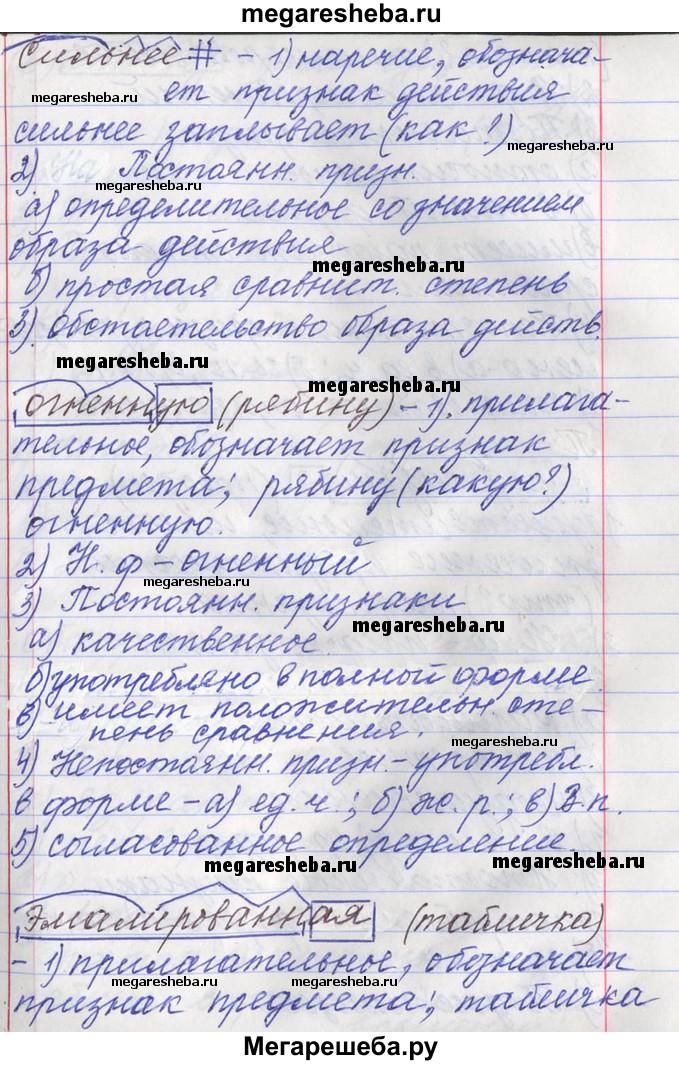 megaresheba.ru
Сильнее # – 1) наречие, обознача-
ет признак действия
megaresheba.ru
сильнее заплывает (как?)
megaresheba.ru
2) Постоянн. призн.
megaresheba.ru
а) определительное со значением
образа действия
megaresheba.ru
б) простая сравнит. степень
3) обстоятельство образа действ.
megaresheba.ru
megaresheba.ru
огненную (рябину) – 1). прилага-
тельное, обозначает признак
предмета; рябину (какую?)
огненную.
2) Н. ф – огненный
megaresheba.ru
3) Постоянн. признаки
megaresheba.ru
а) качественное
б) употреблено в полной форме
в) имеет положительн. сте-
пень сравнения.
megaresheba.ru
4) Непостоянн. призн. – употребл.
в форме – а) ед. ч.; б) ж. р.; в) В. п.
5) согласованное определение.
megaresheba.ru
megaresheba.ru
Эмалированная (табличка)
– 1) прилагательное, обозначает
megaresheba.ru
признак предмета; табличка
Мегарешеба.ру